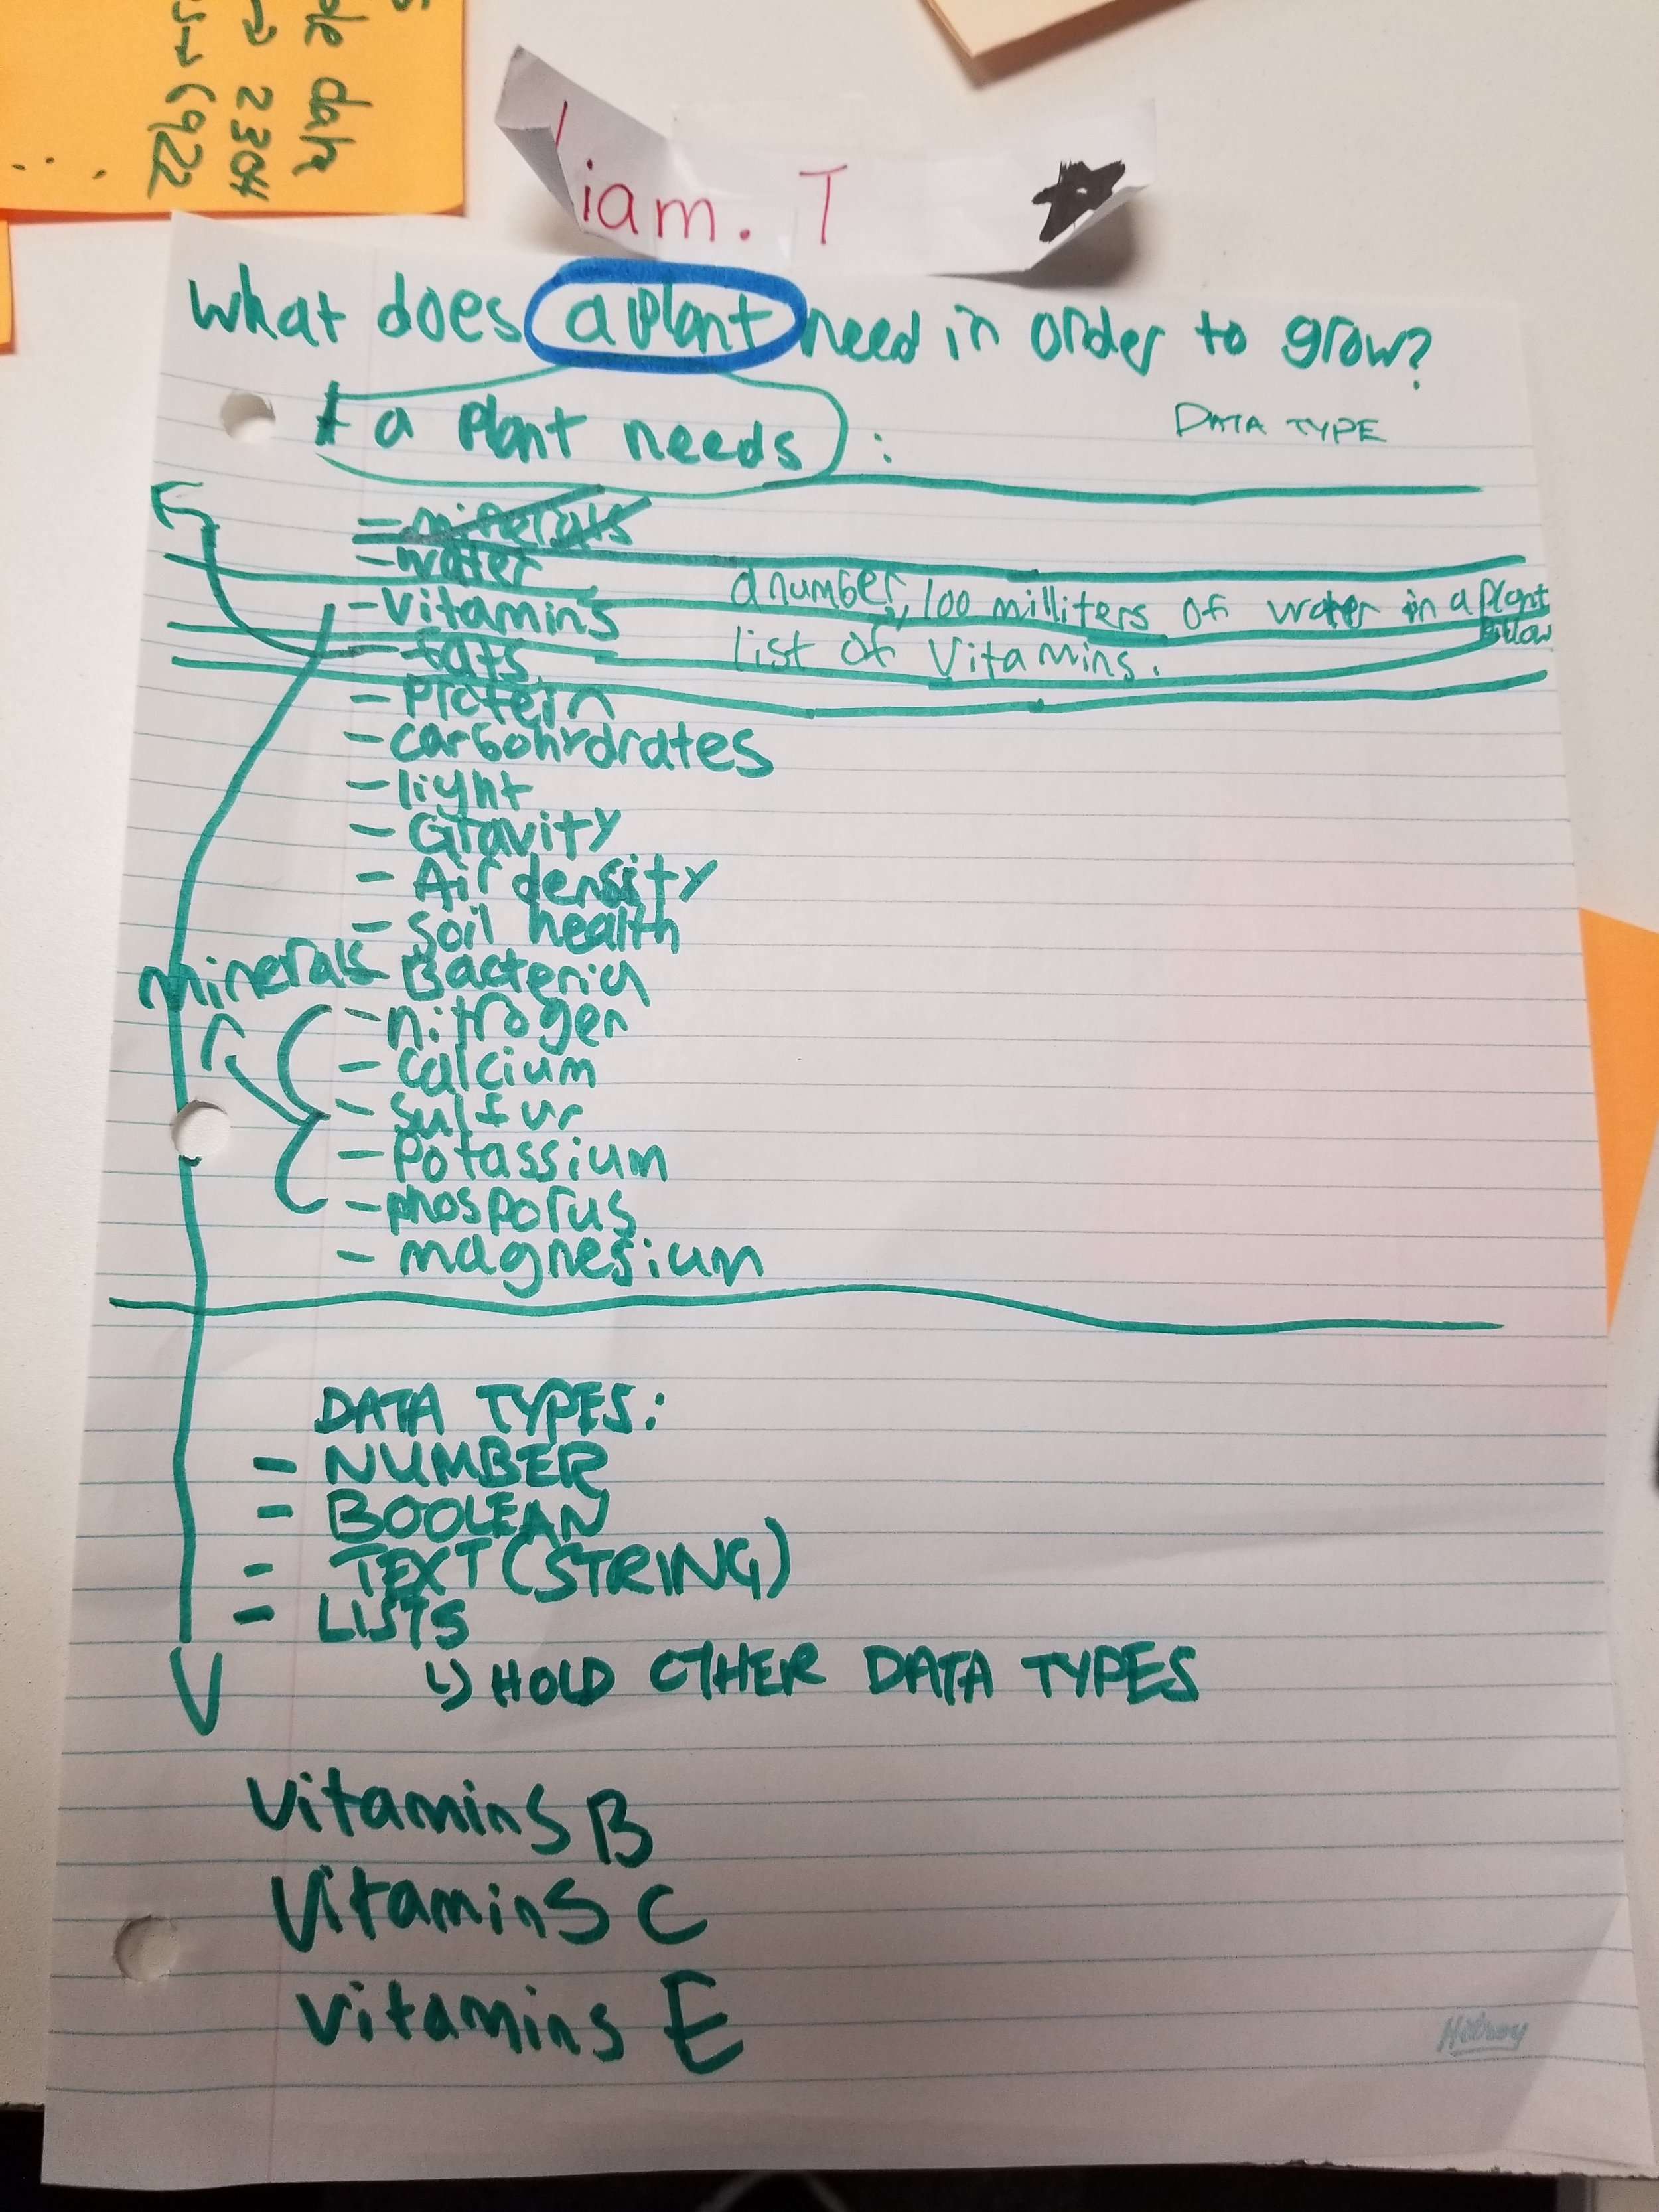 de dah
→ 2304
→ 6922
...
liam. T
what does a plant need in order to grow?
a plant needs :
DATA TYPE
- minerals
- water
a number, 100 milliters of water in a plant
- vitamins
list of vitamins.
- fats
- Protein
- carbohydrates
- light
- Gravity
- Air density
- Soil health
minerals Bacteria
- nitrogen
- Calcium
- Sulfur
- Potassium
- phosporus
- magnesium
DATA TYPES:
- NUMBER
- BOOLEAN
- TEXT (STRING)
- LISTS
↳ HOLD OTHER DATA TYPES
vitamins B
vitamins C
vitamins E
Hilroy